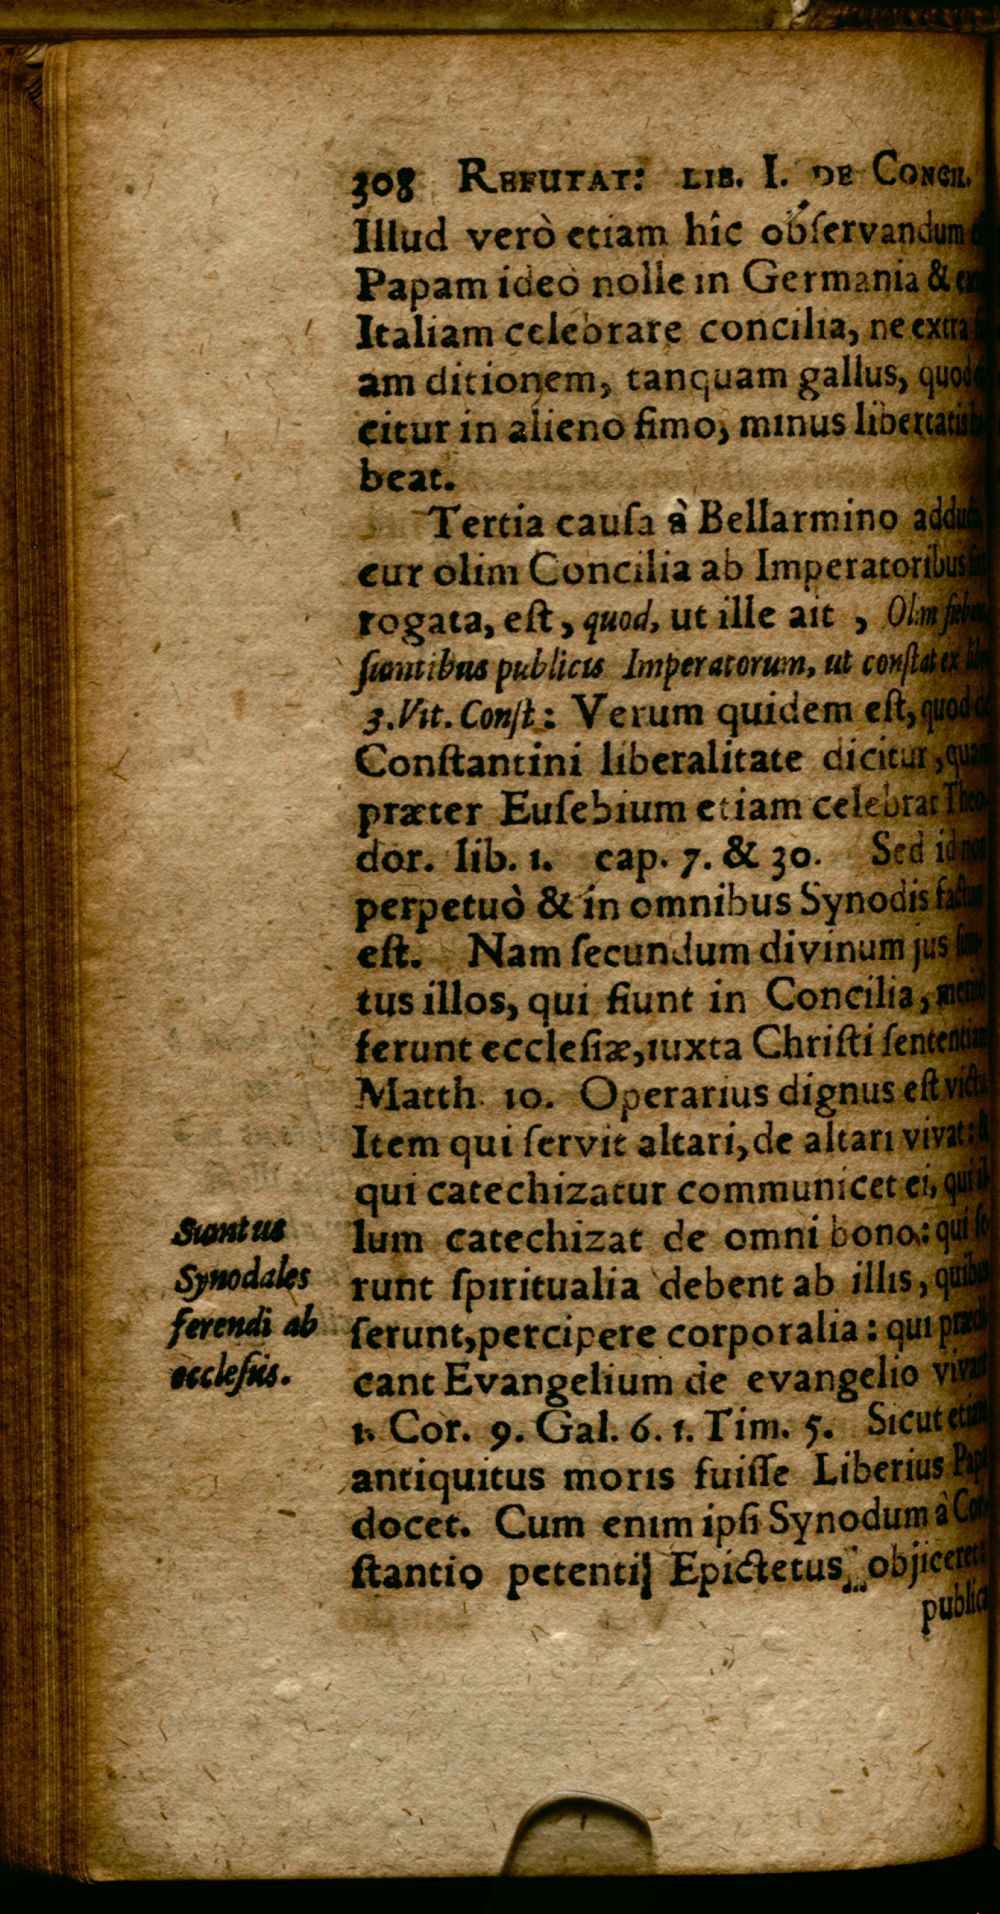 308 REFUTAT: LIB. I. DE CONCIL.
Illud verò etiam hîc obſervandum
Papam ideo nolle in Germania &
Italiam celebrare concilia, ne extra
am ditionem, tanquam gallus, quod
citur in alieno fimo, minus libertatis
beat.
Tertia cauſa à Bellarmino
cur olim Concilia ab Imperatoribus
rogata, eſt, quod, ut ille ait , Olim
ſumtibus publicis Imperatorum, ut conſtat ex
3. Vit. Conſt: Verum quidem eſt, quod de
Conſtantini liberalitate dicitur, quam
præter Euſebium etiam celebrat Theo-
dor. lib. 1. cap. 7. & 30. Sed id non
perpetuò & in omnibus Synodis factum
eſt. Nam ſecundum divinum jus ſum-
tus illos, qui fiunt in Concilia,
ferunt eccleſiæ, iuxta Chriſti ſententiam
Matth. 10. Operarius dignus eſt victu
Item qui ſervit altari, de altari vivat: &
qui catechizatur communicet ei, qui il-
lum catechizat de omni bono: qui ſe-
runt ſpiritualia debent ab illis, quibus
ſerunt, percipere corporalia: qui prædi-
cant Evangelium de evangelio vivant
1. Cor. 9. Gal. 6. 1. Tim. 5. Sicut etiam
antiquitus moris fuiſſe Liberius Papa
docet. Cum enim ipſi Synodum à Con-
ſtantio petenti, Epictetus objiceret:
publica
Sumtus
Synodales
ferendi ab
eccleſiis.